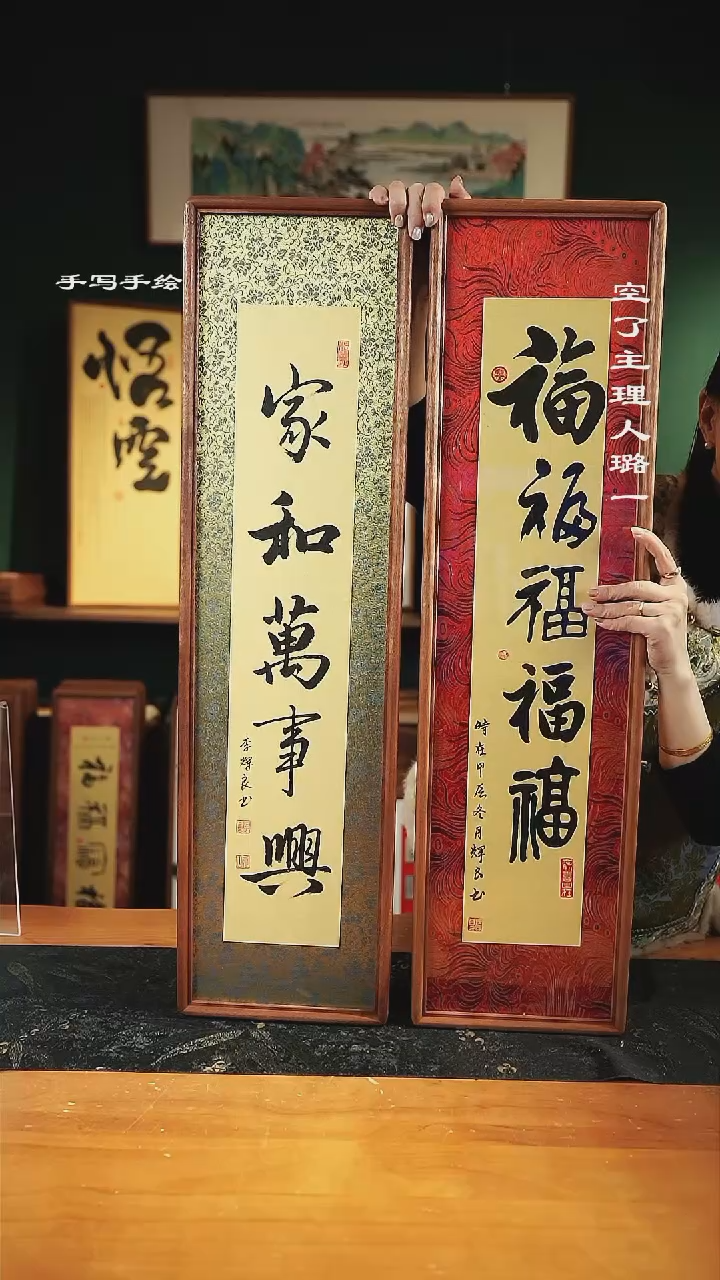 手写手绘
空了主理人璐一
悟空
家和萬事興
李輝良书
福福福福福
時在甲辰冬月輝良书
福福福福